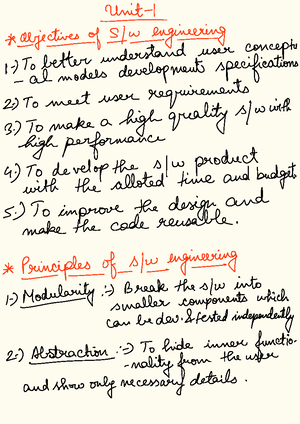 Unit-1
* Objectives of S/w engineering
1.) To better understand user concept
- al models development specifications
2.) To meet user requirements
3.) To make a high quality s/w with
high performance
4.) To develop the s/w product
with the alloted time and budget
5.) To improve the design and
make the code reusable.
* Principles of s/w engineering
1.) Modularity :-) Break the s/w into
smaller components which
can be dev. & tested independently
2.) Abstraction :-) To hide inner functio-
-nality from the user
and show only necessary details.